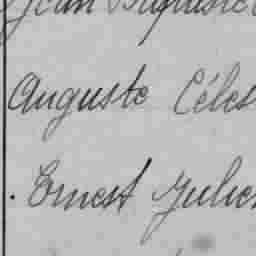 Jean Baptiste
Auguste Céles
. Ernest Julien